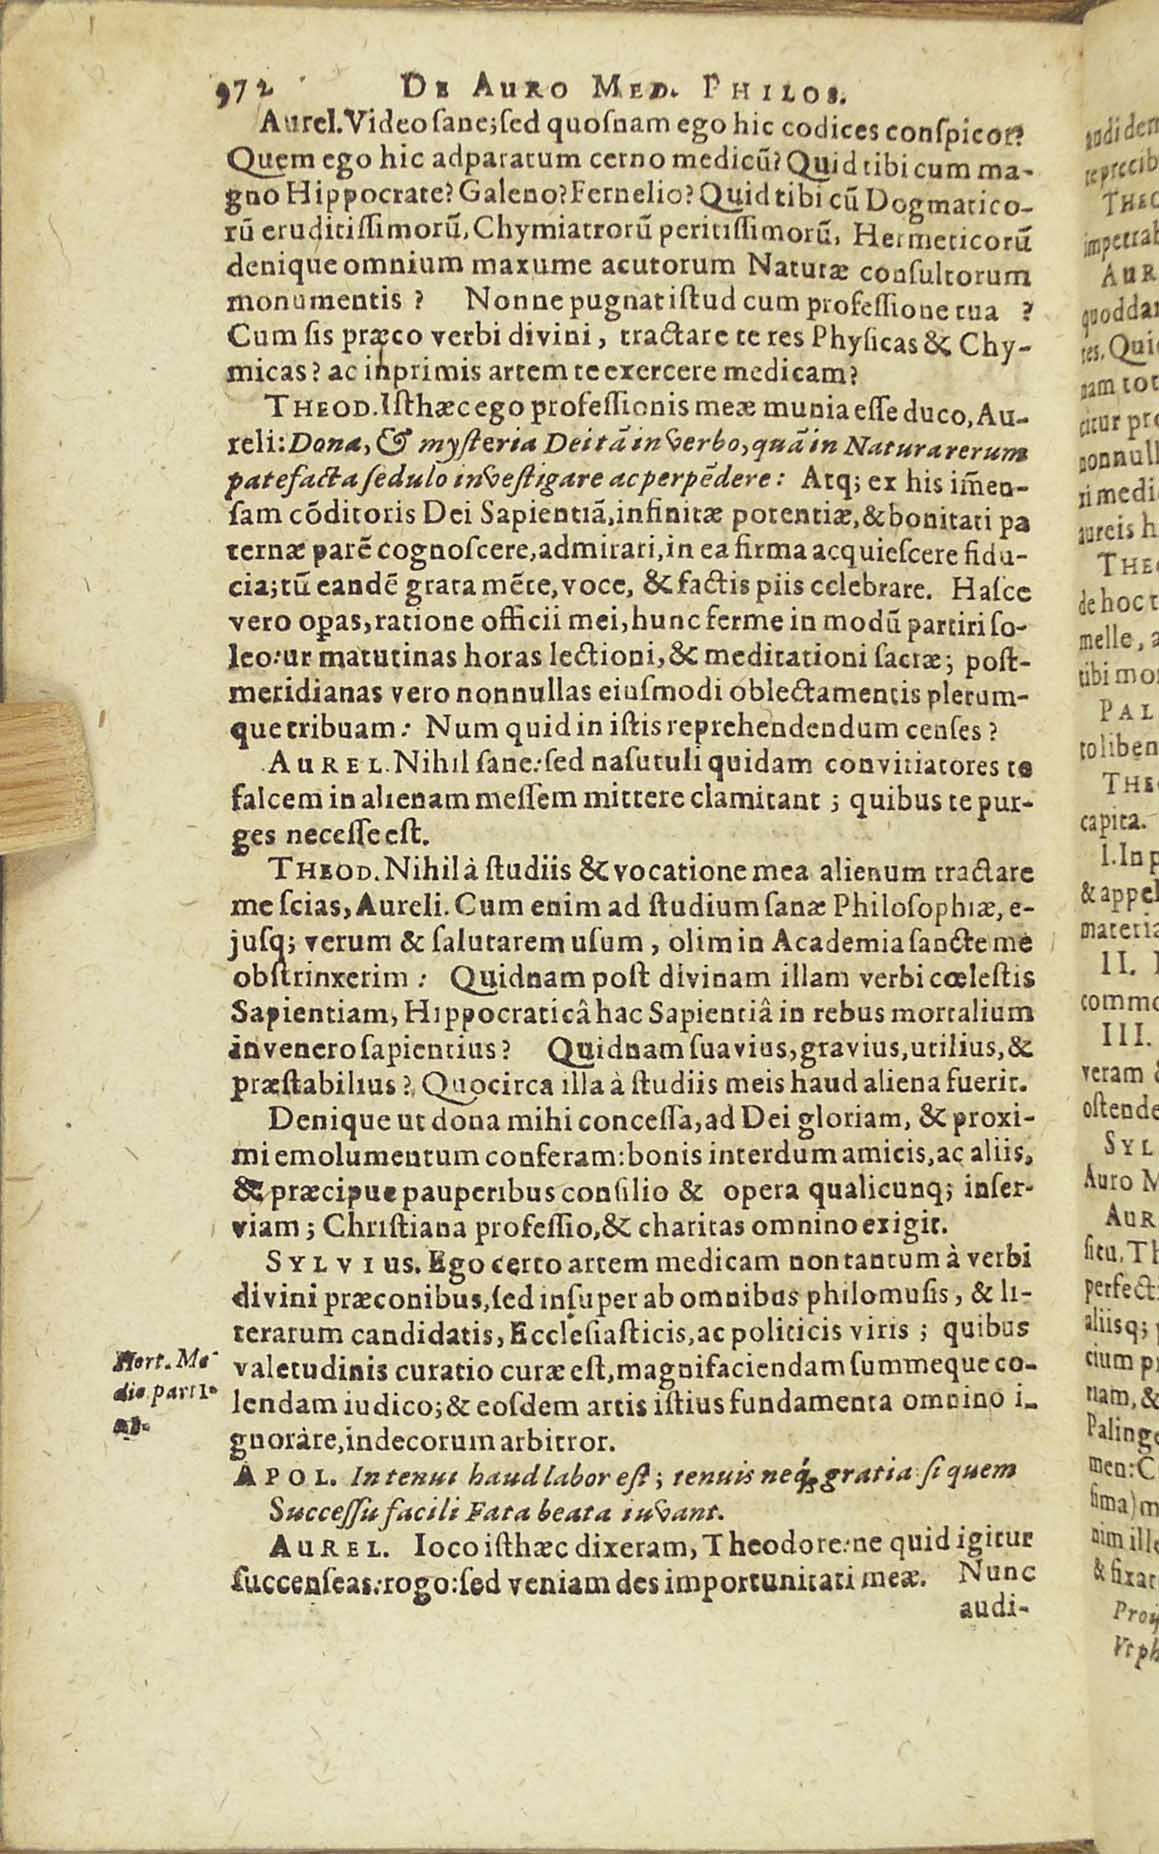 972 DE AURO MED. PHILOS.
Aurel. Video sane; sed quosnam ego hic codices conspicor?
Quem ego hic adparatum cerno medicū? Quid tibi cum ma-
gno Hippocrate? Galeno? Fernelio? Quid tibi cū Dogmatico-
rū eruditissimorū, Chymiatrorū peritissimorū, Hermeticorū
denique omnium maxume acutorum Naturæ consultorum
monumentis? Nonne pugnat istud cum professione tua ?
Cum sis præco verbi divini, tractare te res Physicas & Chy-
micas? ac inprimis artem te exercere medicam?
THEOD. Isthæc ego professionis meæ munia esse duco, Au-
reli: Dona, & mysteria Dei tā in verbo, quā in Natura rerum
patefacta sedulo investigare ac perpēdere: Atq; ex his im̄en-
sam cōditoris Dei Sapientiā, infinitæ potentiæ, & bonitati pa
ternæ parē cognoscere, admirari, in ea firma acquiescere fidu-
cia; tū eandē grata mēte, voce, & factis piis celebrare. Hasce
vero oꝑas, ratione officii mei, hunc ferme in modū partiri so-
leo: ut matutinas horas lectioni, & meditationi sacræ; post-
meridianas vero nonnullas eiusmodi oblectamentis plerum-
que tribuam: Num quid in istis reprehendendum censes?
AUREL. Nihil sane: sed nasutuli quidam convitiatores te
falcem in alienam messem mittere clamitant; quibus te pur-
ges necesse est.
THEOD. Nihil à studiis & vocatione mea alienum tractare
me scias, Aureli. Cum enim ad studium sanæ Philosophiæ, e-
jusq; verum & salutarem usum, olim in Academia sancte me
obstrinxerim: Quidnam post divinam illam verbi cœlestis
Sapientiam, Hippocraticâ hac Sapientiâ in rebus mortalium
invenero sapientius? Quidnam suavius, gravius, utilius, &
præstabilius? Quocirca illa à studiis meis haud aliena fuerit.
Denique ut dona mihi concessa, ad Dei gloriam, & proxi-
mi emolumentum conferam: bonis interdum amicis, ac aliis,
& præcipue pauperibus consilio & opera qualicunq; inser-
viam; Christiana professio, & charitas omnino exigit.
SYLVIUS. Ego certo artem medicam non tantum à verbi
divini præconibus, sed insuper ab omnibus philomusis, & li-
terarum candidatis, Ecclesiasticis, ac politicis viris; quibus
valetudinis curatio curæ est, magnifaciendam summeque co-
lendam iudico; & eosdem artis istius fundamenta omnino i-
gnorare, indecorum arbitror.
Hort. Me-
dic. part 1.
APOL. In tenui haud labor est; tenuis neq́; gratia si quem
Successu facili Fata beata iuvant.
AUREL. Ioco isthæc dixeram, Theodore: ne quid igitur
succenseas: rogo: sed veniam des importunitati meæ. Nunc
audi-